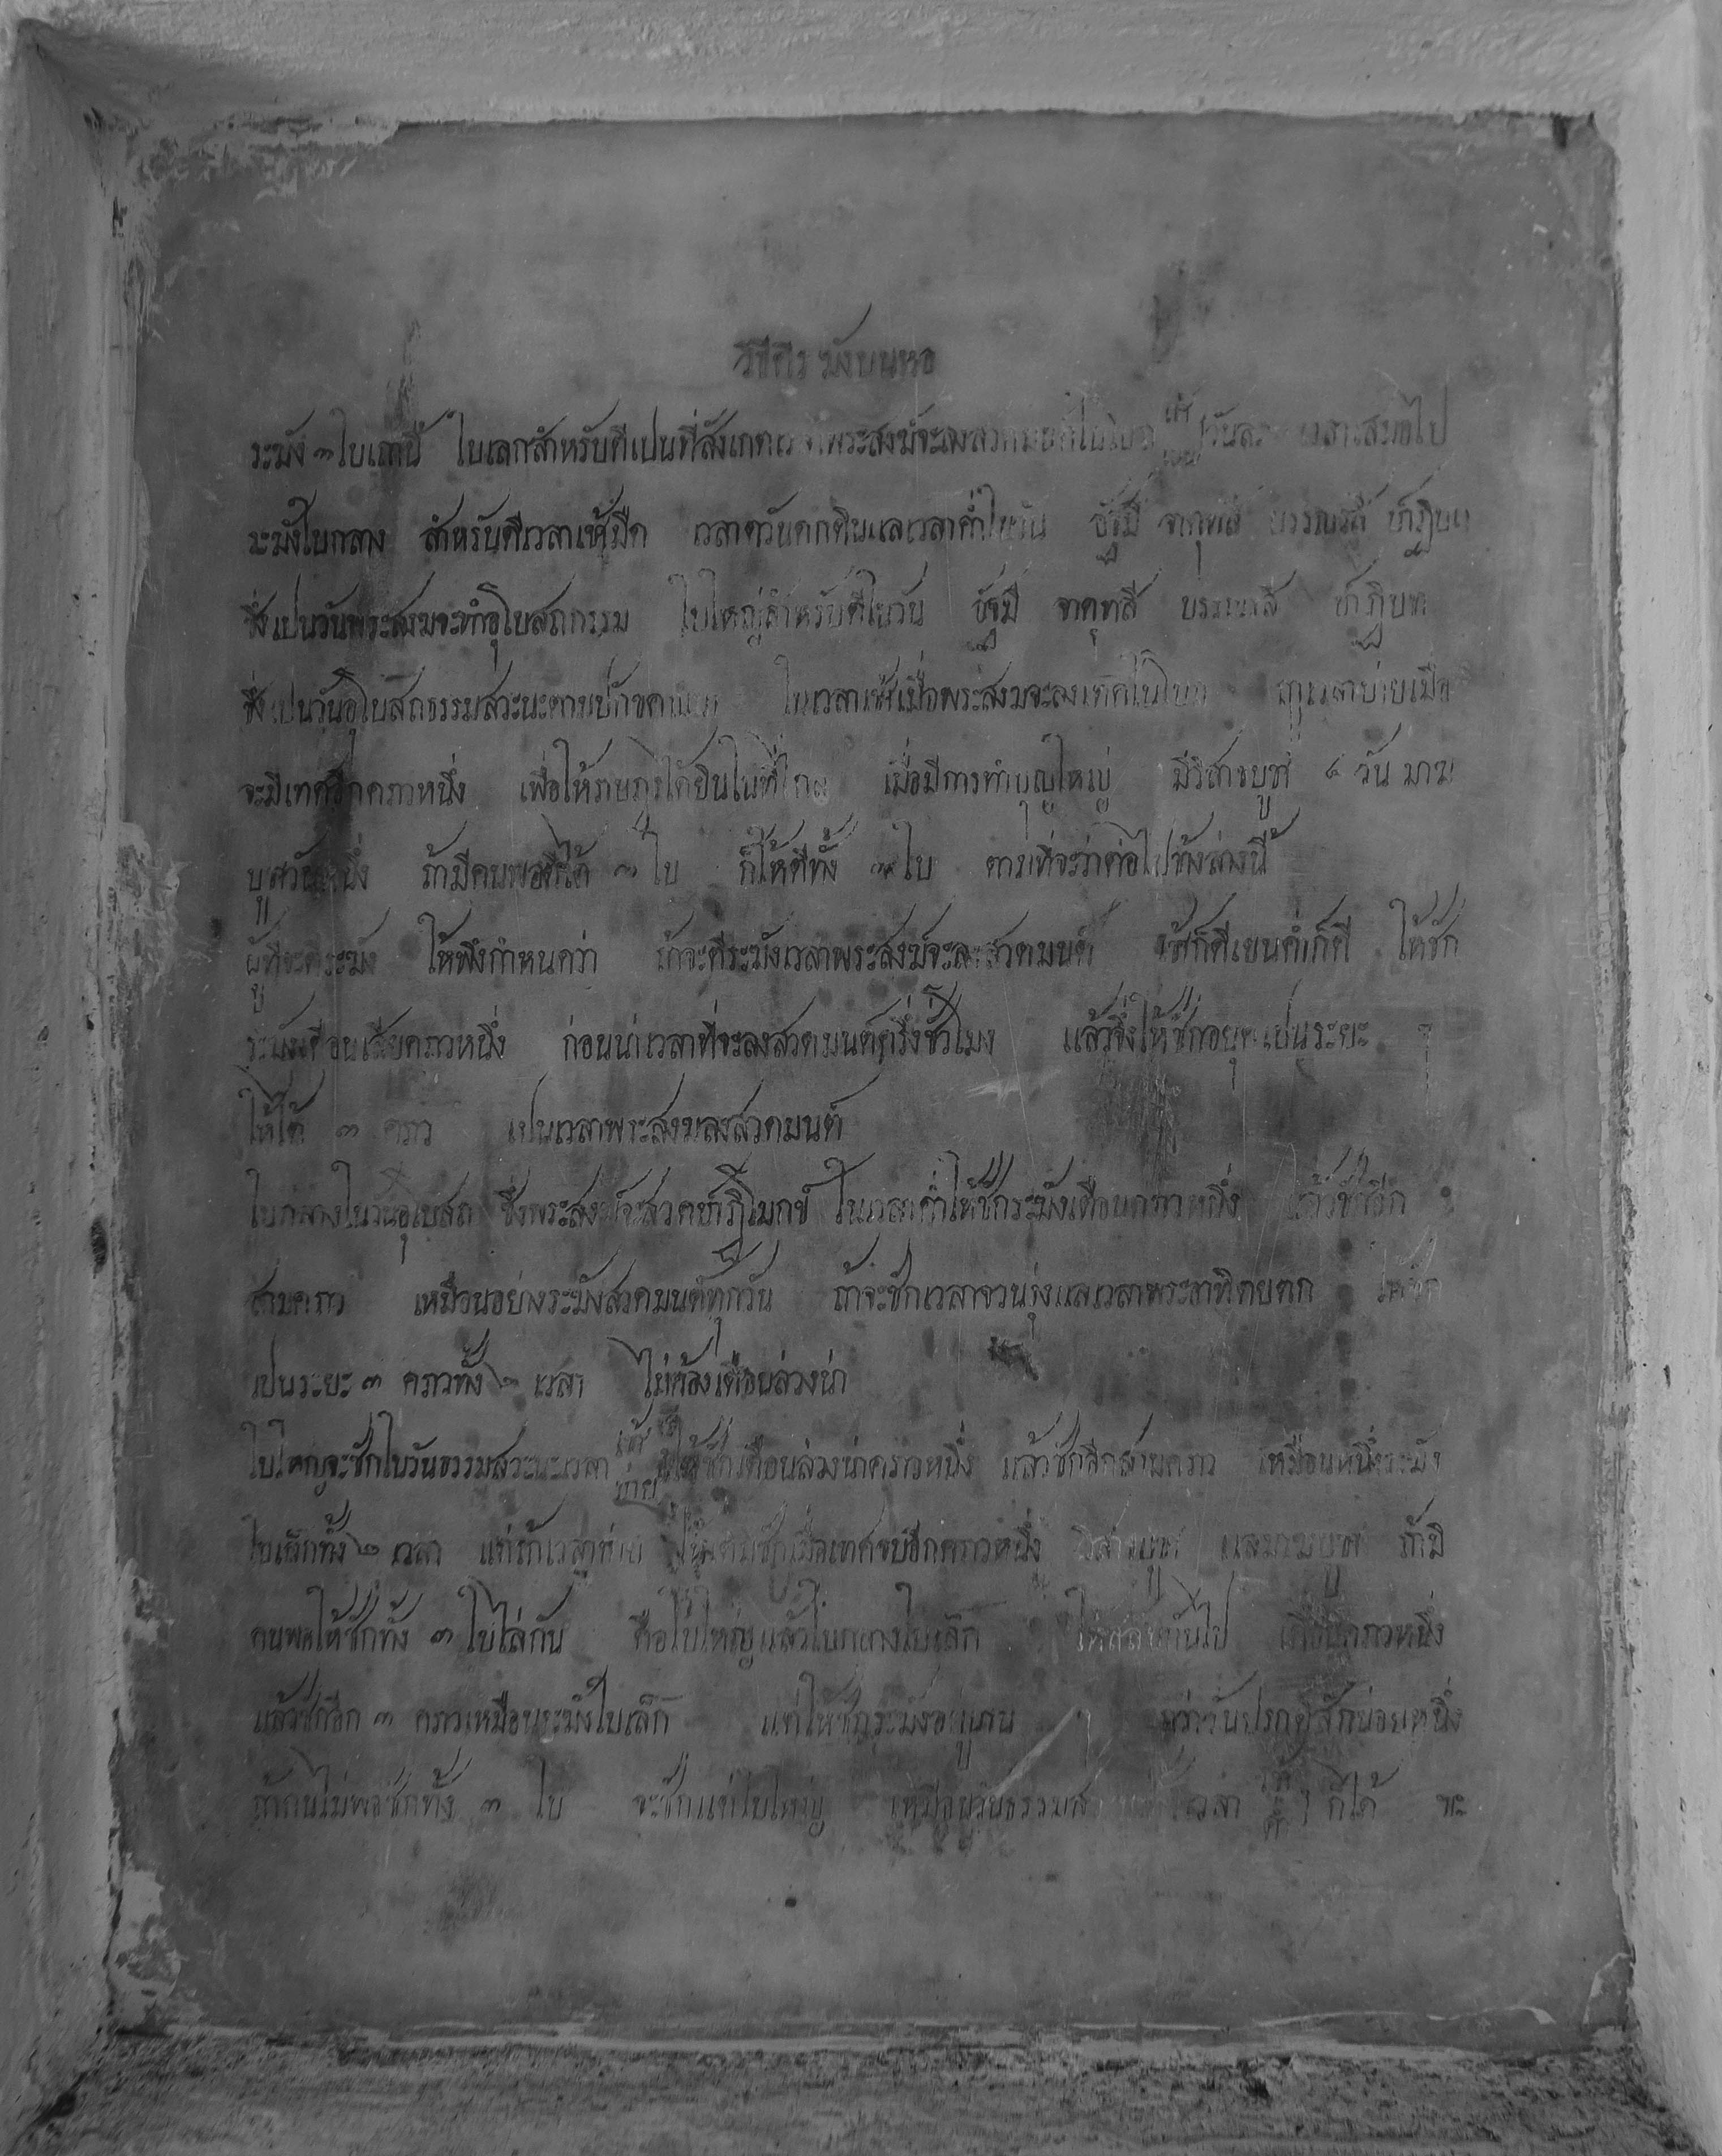 วิธีตีระฆังบนหอ
ระฆัง ๓ ใบเถานี้ ใบเลกสำหรับตีเปนที่สังเกตเวลาพระสงฆ์จะลงสวดมนต์ในโบถ เช้า เยน วันละ เวลาเสมอไป
ระฆังใบกลาง สำหรับตีเวลาเช้ามืด เวลาตวันตกดินแลเวลาค่ำในวัน อัฐมี จาตุทสี บรรณรสี ปาฏิบท
ซึ่งเปนวันพระสงฆจะทำอุโบสถกรรม ใบใหญ่สำหรับตีในวัน อัฐมี จาตุทสี บรรณรสี ปาฏิบท
ซึ่งเปนวันอุโบสถธรรมสวะนะตามปักขคณนา ในเวลาเช้าเมื่อพระสงฆจะลงเทศในโบถ เวลาบ่ายเมื่อ
จะมีเทศอีกคราวหนึ่ง เพื่อให้ราษฎรได้ยินในที่ไกล เมื่อมีการทำบุญใหญ่ มีวิสาขบูชา ๔ วัน มาฆ
บูชาวันหนึ่ง ถ้ามีคนพอตีได้ ๓ ใบ ก็ให้ตีทั้ง ๓ ใบ ตามที่จะว่าต่อไปข้างล่างนี้
ผู้ที่จะตีระฆัง ให้พึงกำหนดว่า ถ้าจะตีระฆังเวลาพระสงฆ์จะลงสวดมนต์ เช้าก็ดีเยนค่ำก็ดี ให้ชัก
ระฆังเตือนเสียคราวหนึ่ง ก่อนน่าเวลาที่จะลงสวดมนต์ครึ่งชั่วโมง แล้วจึ่งให้ชักอยุดเปนระยะ ๆ
ให้ได้ ๓ คราว เปนเวลาพระสงฆลงสวดมนต์
ใบกลางในวันอุโบสถ ซึ่งพระสงฆ์จะสวดปาฏิโมกข์ ในเวลาค่ำให้ชักระฆังเตือนคราวหนึ่ง แล้วชักอีก
สามคราว เหมือนอย่างระฆังสวดมนต์ทุกวัน ถ้าจะชักเวลาจวนรุ่งแลเวลาพระอาทิตยตก ให้ชัก
เปนระยะ ๓ คราวทั้ง ๒ เวลา ไม่ต้องเตือนล่วงน่า
ใบใหญจะชักในวันธรรมสวะนะเวลา เช้า บ่าย ก็ให้ชักเตือนล่วงน่าคราวหนึ่ง แล้วชักอีกสามคราว เหมือนหนึ่งระฆัง
ใบเล็กทั้ง ๒ เวลา แต่ถ้าเวลาบ่าย ให้เติมชักเมื่อเทศจบอีกคราวหนึ่ง วิสาขบูชา แลมาฆบูชา ถ้ามี
คนพอให้ชักทั้ง ๓ ใบไล่กัน คือใบใหญ่แล้วใบกลางใบเล็ก ให้สลับกันไป เตือนคราวหนึ่ง
แล้วชักอีก ๓ คราวเหมือนระฆังใบเล็ก แต่ให้ชักระฆังอยู่นาน กว่าวันปรกติสักน่อยหนึ่ง
ถ้าคนไม่พอชักทั้ง ๓ ใบ จะชักแต่ใบใหญ่ เหมือนวันธรรมสวะนะ เวลา เช้า ค่ำ ก็ได้